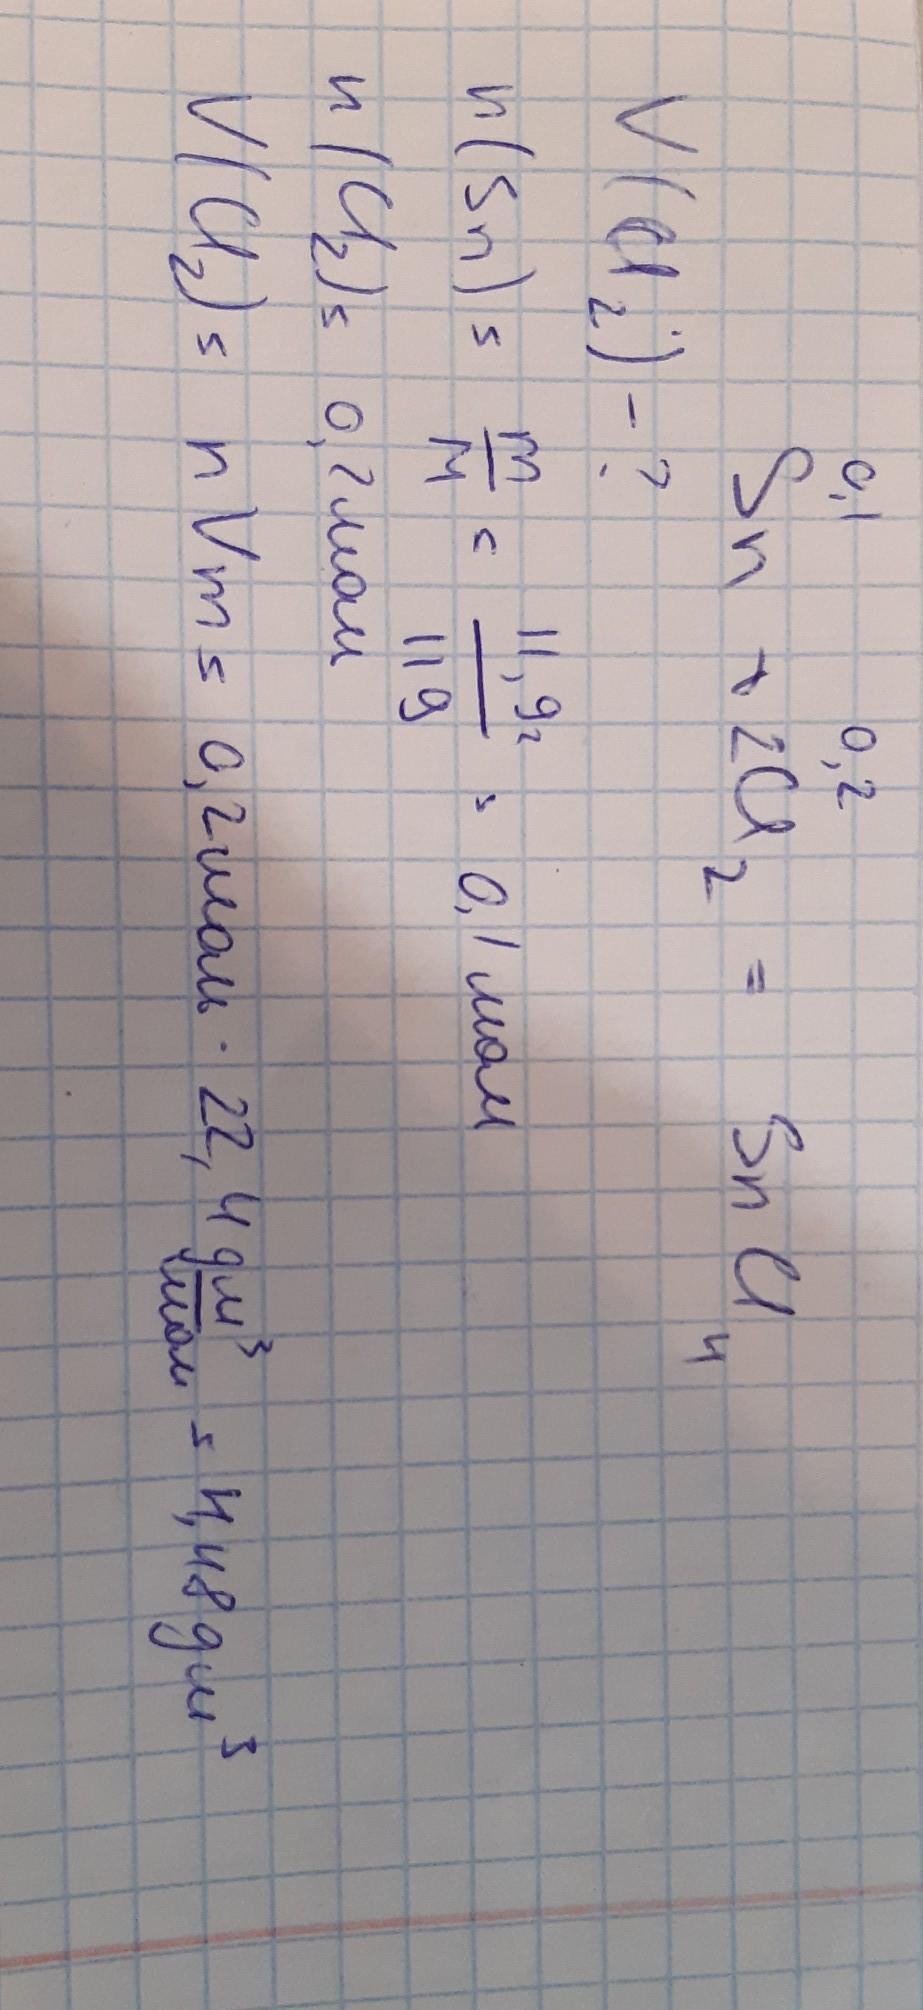 0,1 0,2
Sn + 2Cl₂ = SnCl₄
V(Cl₂) - ?
n(Sn) = m/M = 11,9г/119 = 0,1 моль
n(Cl₂) = 0,2 моль
V(Cl₂) = nVm = 0,2 моль · 22,4 дм³/моль = 4,48 дм³